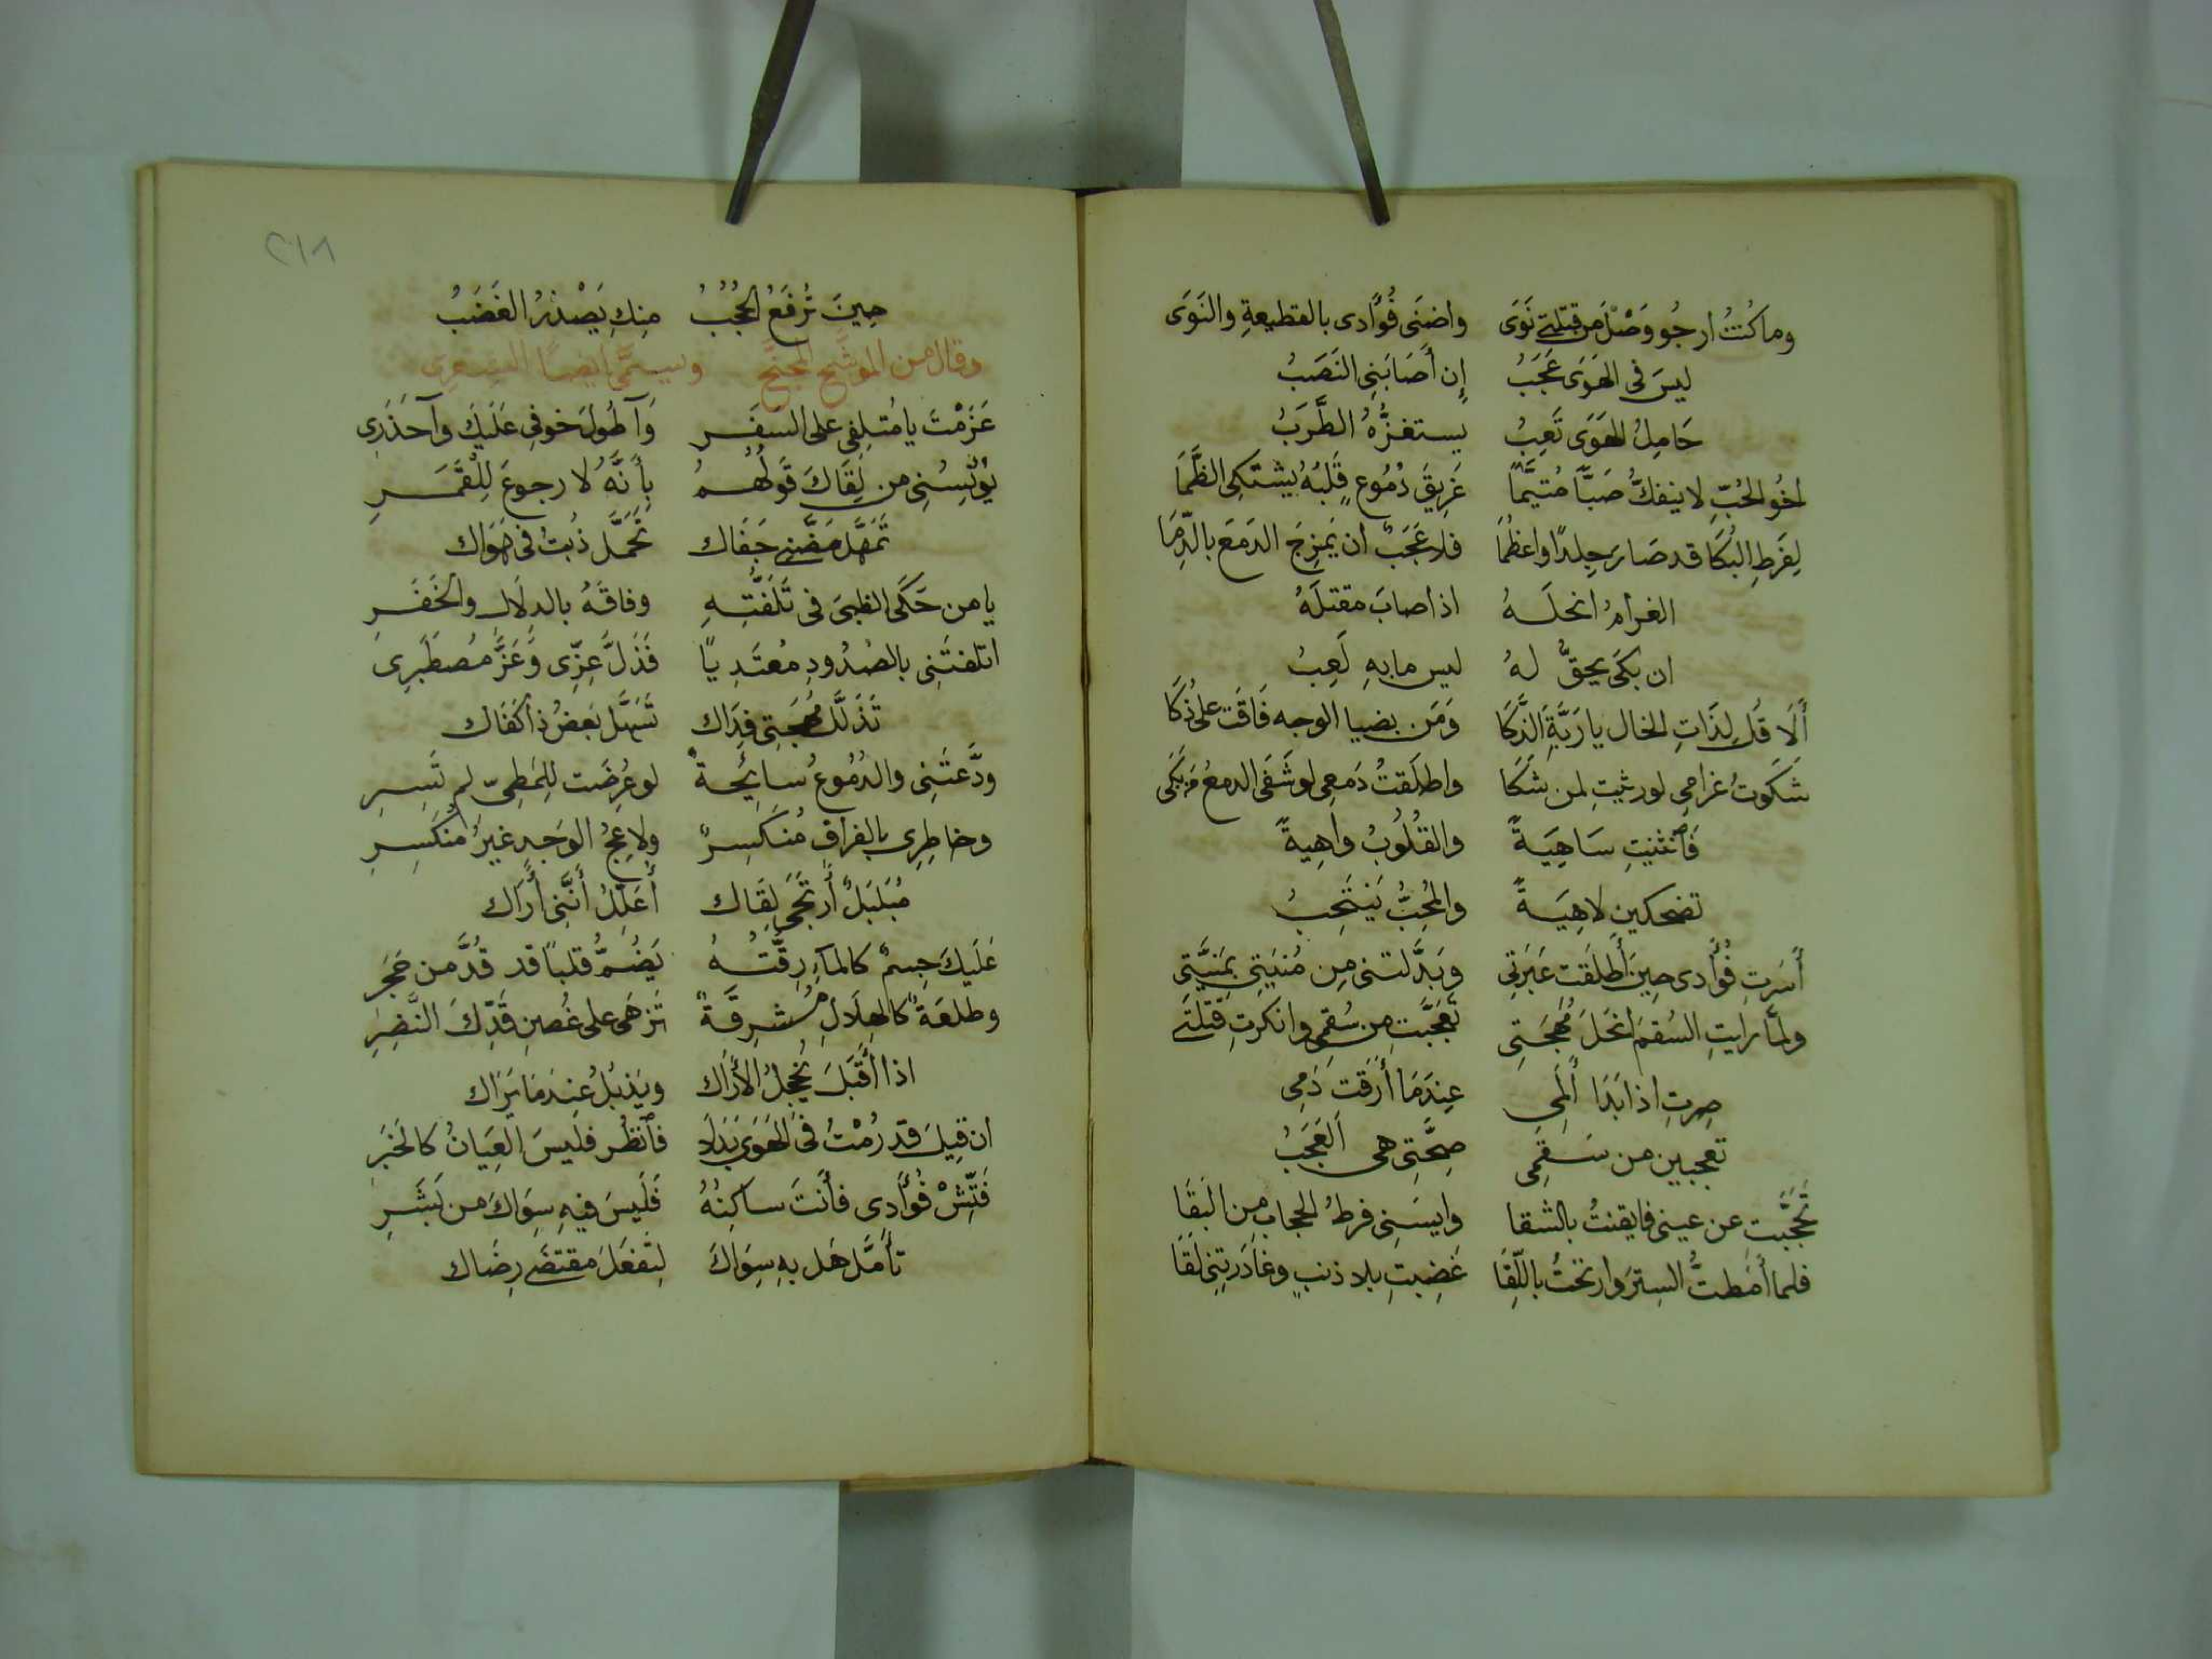 وما كُنتُ ارجُو وَصْلَ مَن قتلتي نَوَى واضنَى فُؤَادى بالقطيعةِ والنَوَى
ليسَ فى الهَوَى عَجَبُ إِن أَصَابَنِى النَصَبُ
حَامِلُ الهَوَى تَعِبُ يستفزُّهُ الطَّرَبُ
اخُو الحُبِّ لا ينفكُّ صَبًّا مُتيَّمًا غَرِيقَ دُمُوعٍ قَلبُهُ يشتكِى الظَّمَا
لِفَرطِ البُكَا قد صَارَ جِلدًا واعظُمَا فلا عَجَبٌ ان يَمزِجَ الدَمعَ بالدِّمَا
الغرامُ انحلَهُ اذا اصابَ مقتلَهُ
ان بكَى يحقُّ لهُ ليس ما بهِ لَعِبُ
أَلَا قُل لِذَاتِ الخال يا رَبَّةَ الذَّكَا وَمَن بضيا الوجه فَاقَت على ذُكَا
شكَوتُ غرامِى لو رثيتِ لمن شَكَا واطلَقتُ دَمعِى لو شَفَى الدمعُ مَن بَكَى
فَٱنثنيتِ سَاهِيَةً والقُلُوبُ واهِيةٌ
تضحكين لاهِيَةً والمُحِبُّ يَنتَحِبُ
أَسَرتِ فُؤَادى حِينَ أَطلَقت عَبَرتِى وبَدَّلتنى مِن مُنيَتِى بِمَنيَّتِى
ولمّا رايتِ السُقمَ انحَلَ مُهجَتِى تَعَجَّبتِ من سُقمِى وانكرتِ قتلَتِى
صِرتِ اذا بَدَا أَلَمِى عِندَمَا أَرَقتَ دَمِى
تعجبين من سَقَمِى صِحَّتِى هى العَجَبُ
تَحَجَّبتِ عن عينى فايقنتُ بالشقا وايسَنِى فرطُ الحجابِ مِنَ البَقَا
فلما أَمَطتُّ السِترَ وارتحتُ باللِّقَا غَضِبتِ بلا ذنبٍ وغَادَرتِنِى لَقَا
٢١٨
حِينَ تُرفَعُ الحُجُبُ مِنكِ يَصْدُرُ الغَضَبُ
وقال من الموشَّح المجنَّح ويسمَّى ايضًا
عَزَمْتَ يا مُتلِفِى على السفَرِ وَآ طُولَ خوفِى عَلَيكَ وآ حَذَرِى
يُؤيِسُنِى من لِقَاكَ قَولُهُمُ بِأَنَّهُ لا رجوعَ لِلقَمَرِ
تَمَهَّل مَضَّنى جَفَاك تَحَمَّل ذُبتُ فى هَوَاك
يا من حَكَى الظبىَ فى تَلَفُّتِهِ وفاقَهُ بالدلَالِ والخَفَرِ
اتلفتَنِى بالصُدُودِ مُعتَدِيًا فَذَلَّ عِزِّى وَعَزَّ مُصطَبَرِى
تَذَلَّل مُهجَتِى فِدَاك تَسَهَّل بَعضُ ذا كَفَاك
ودَّعتَنِى والدُمُوعُ سايحةٌ لو عُرِضَت لِلمَطِىِّ لم تَسِرِ
وخاطِرِى بالفراقِ مُنكَسِرٌ ولاعِجُ الوَجدِ غيرُ مُنكَسِرِ
مُبَلبَلٌ أَرتَجِى لِقَاك أُعَلَّلُ أَنَّنِى أَرَاك
عَلَيكَ جِسمٌ كالمآءِ رِقَّتُهُ يَضُمُّ قلبًا قد قُدَّ من حَجَرِ
وطلعَةٌ كالهِلَالِ مُشرِقَةٌ تزهَى على غُصنِ قَدِّكَ النَّضِرِ
اذا أَقبَلَ يُخجِلُ الأَرَاك ويَذبُلُ عِندَمَا يَرَاك
ان قِيلَ قد رُمْتُ فى الهَوَى بَدَلا فٱنظُر فليسَ العِيَانُ كالخبَرِ
فَتِّشْ فُؤَادِى فأَنتَ ساكِنُهُ فَلَيسَ فيهِ سِوَاكَ من بَشَرِ
تأَمَّل هَل بهِ سِوَاكَ لِتَفعَلَ مقتضَى رِضَاك